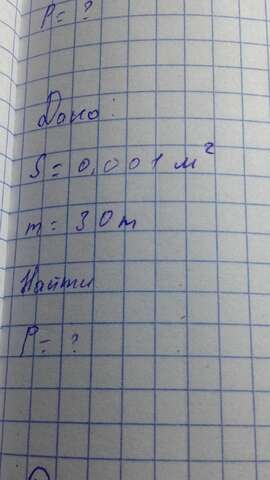 P = ?
Дано:
S = 0,001 м²
m = 30т
Найти
P = ?